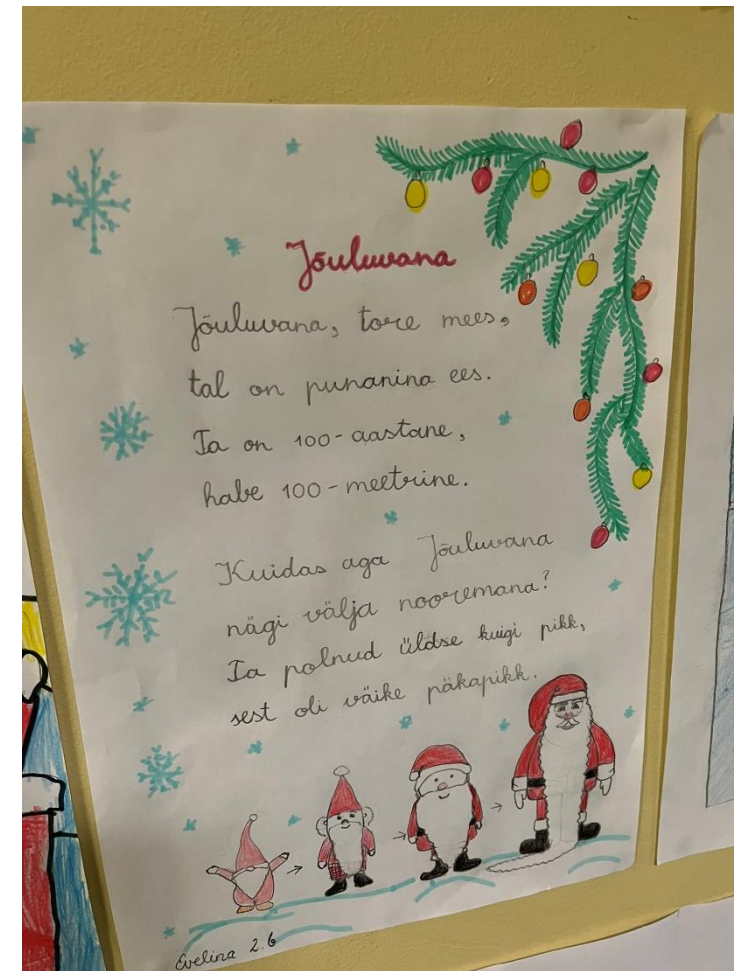 Jõuluvana
Jõuluvana, tore mees,
tal on punanina ees.
Ta on 100-aastane,
habe 100-meetrine.
Kuidas aga Jõuluvana
nägi välja nooremana?
Ta polnud üldse kuigi pikk,
sest oli väike päkapikk.
Evelina 2.б